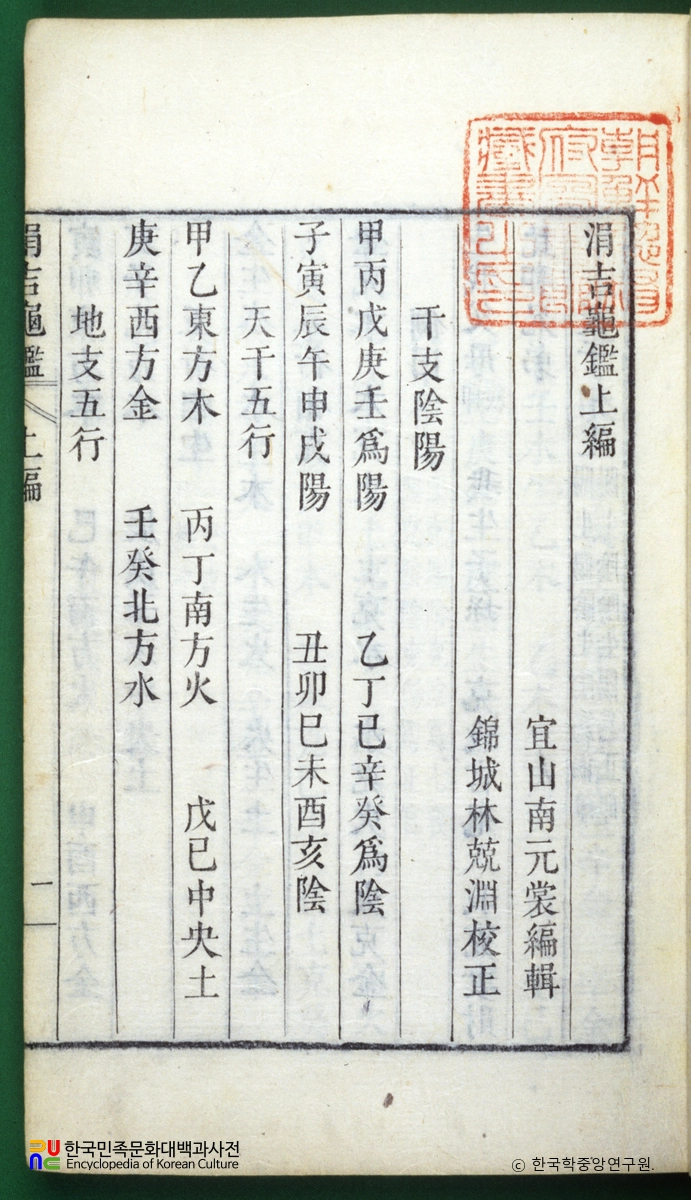 涓吉龜鑑上編
宜山南元裳編輯
錦城林兢淵校正
干支陰陽
甲丙戊庚壬爲陽 乙丁己辛癸爲陰
子寅辰午申戌陽 丑卯巳未酉亥陰
天干五行
甲乙東方木 丙丁南方火 戊己中央土
庚辛西方金 壬癸北方水
地支五行
涓吉龜鑑 上編 一
朝鮮總督府圖書館藏書之印
한국민족문화대백과사전
Encyclopedia of Korean Culture
© 한국학중앙연구원.